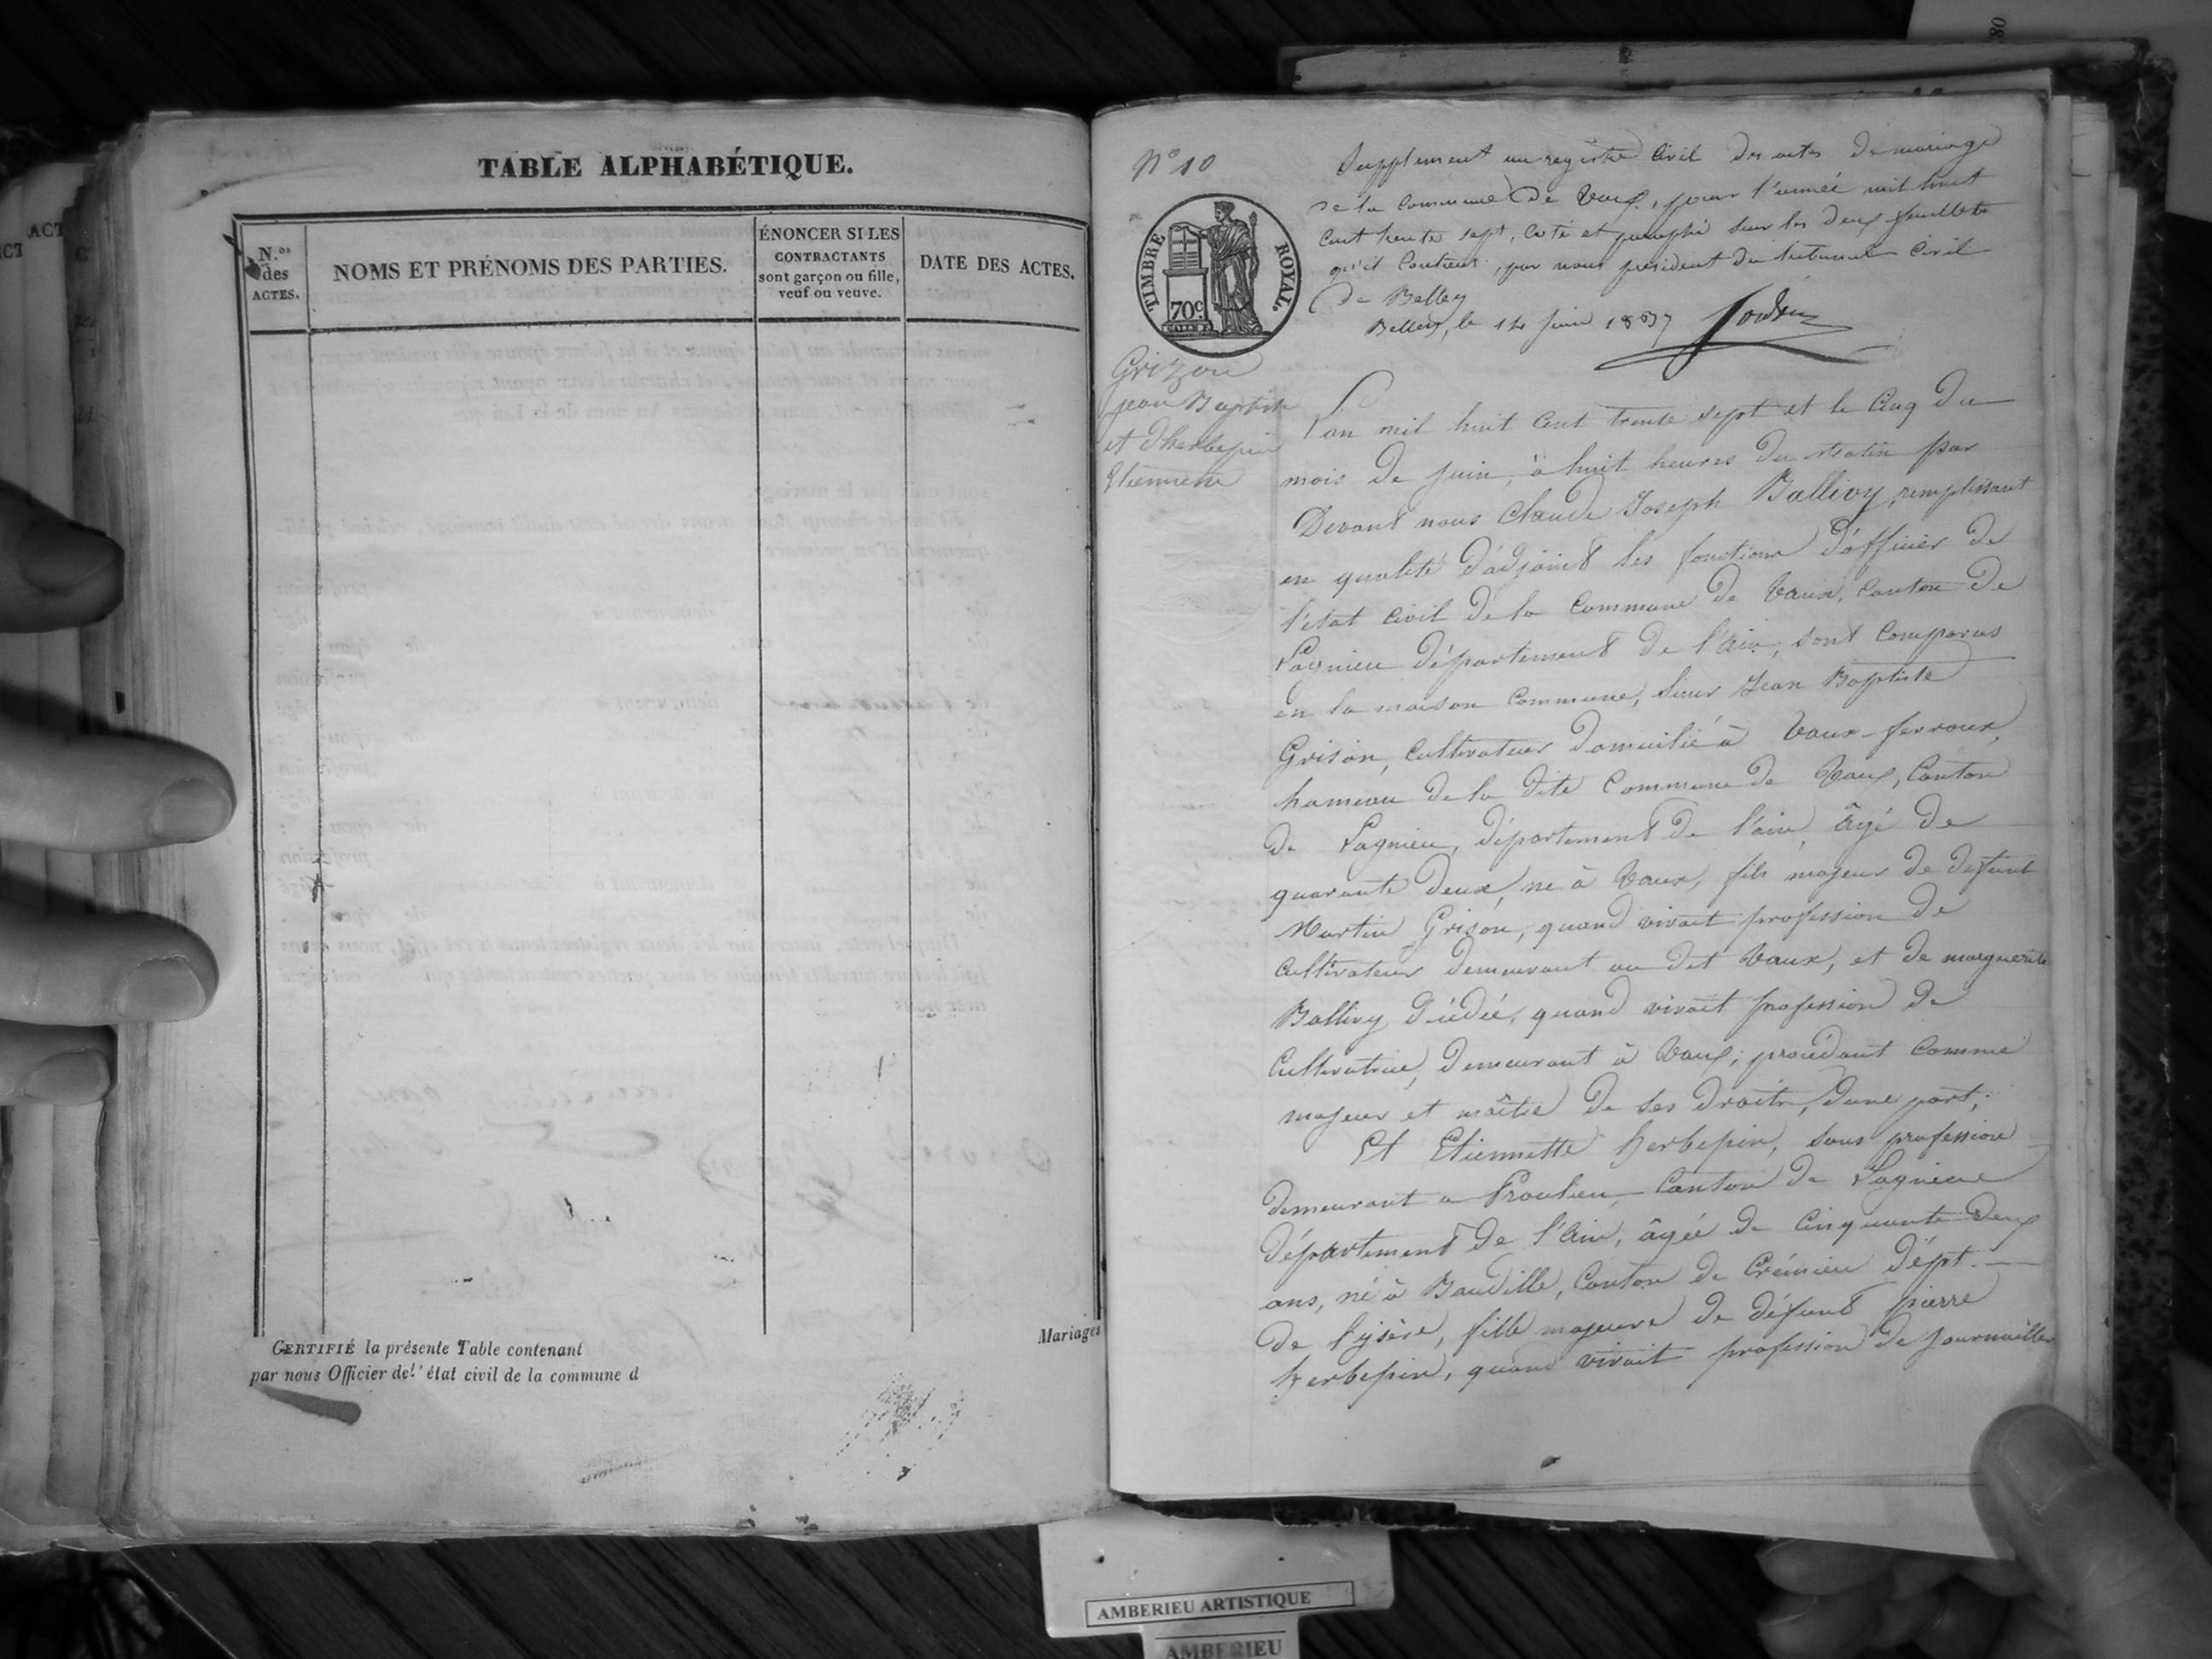 TABLE ALPHABÉTIQUE.
N.os des ACTES.
NOMS ET PRÉNOMS DES PARTIES.
ÉNONCER SI LES
CONTRACTANTS
sont garçon ou fille,
veuf ou veuve.
DATE DES ACTES.
Mariages
CERTIFIÉ la présente Table contenant
par nous Officier de l'état civil de la commune d
N° 10
TIMBRE ROYAL.
70c
Supplement au registre Civil des actes de mariage
de la Commune de Vaux, pour l'année mil huit
cent trente sept, coté et paraphé sur les deux feuillets
qu'il contient, par nous président du tribunal Civil
de Belley
Belley, le 14 juin 1837
Grizon
jean Baptiste
et Dherbepin
Etiennette
L'an mil huit cent trente sept et le cinq du
mois de juin, à huit heures du matin par
Devant nous Claude Joseph Ballivy, remplissant
en qualité d'adjoint les fonctions d'officier de
l'état civil de la Commune de Vaux, Canton de
Lagnieu département de l'ain, sont comparus
en la maison commune, sieur Jean Baptiste
Grison, cultivateur domicilié à Vaux-fevroux,
hameau de la dite Commune de Vaux, Canton
de Lagnieu, département de l'ain, âgé de
quarante deux, né à Vaux, fils majeur de defunt
Martin Grison, quand vivait profession de
Cultivateur demeurant au dit Vaux, et de marguerite
Ballivy décédée, quand vivait profession de
Cultivatrice, demeurant à Vaux; procédant comme
majeur et maître de ses droits, d'une part;
Et Etiennette herbepin, sans profession
demeurant a Proulieu Canton de Lagnieu
département de l'ain, âgée de cinquante deux
ans, né à Baudille, Canton de Crémieu dépt.
de l'ysère, fille majeure de défunt pierre
herbepin, quand vivait profession de journaillier
AMBERIEU ARTISTIQUE
AMBERIEU